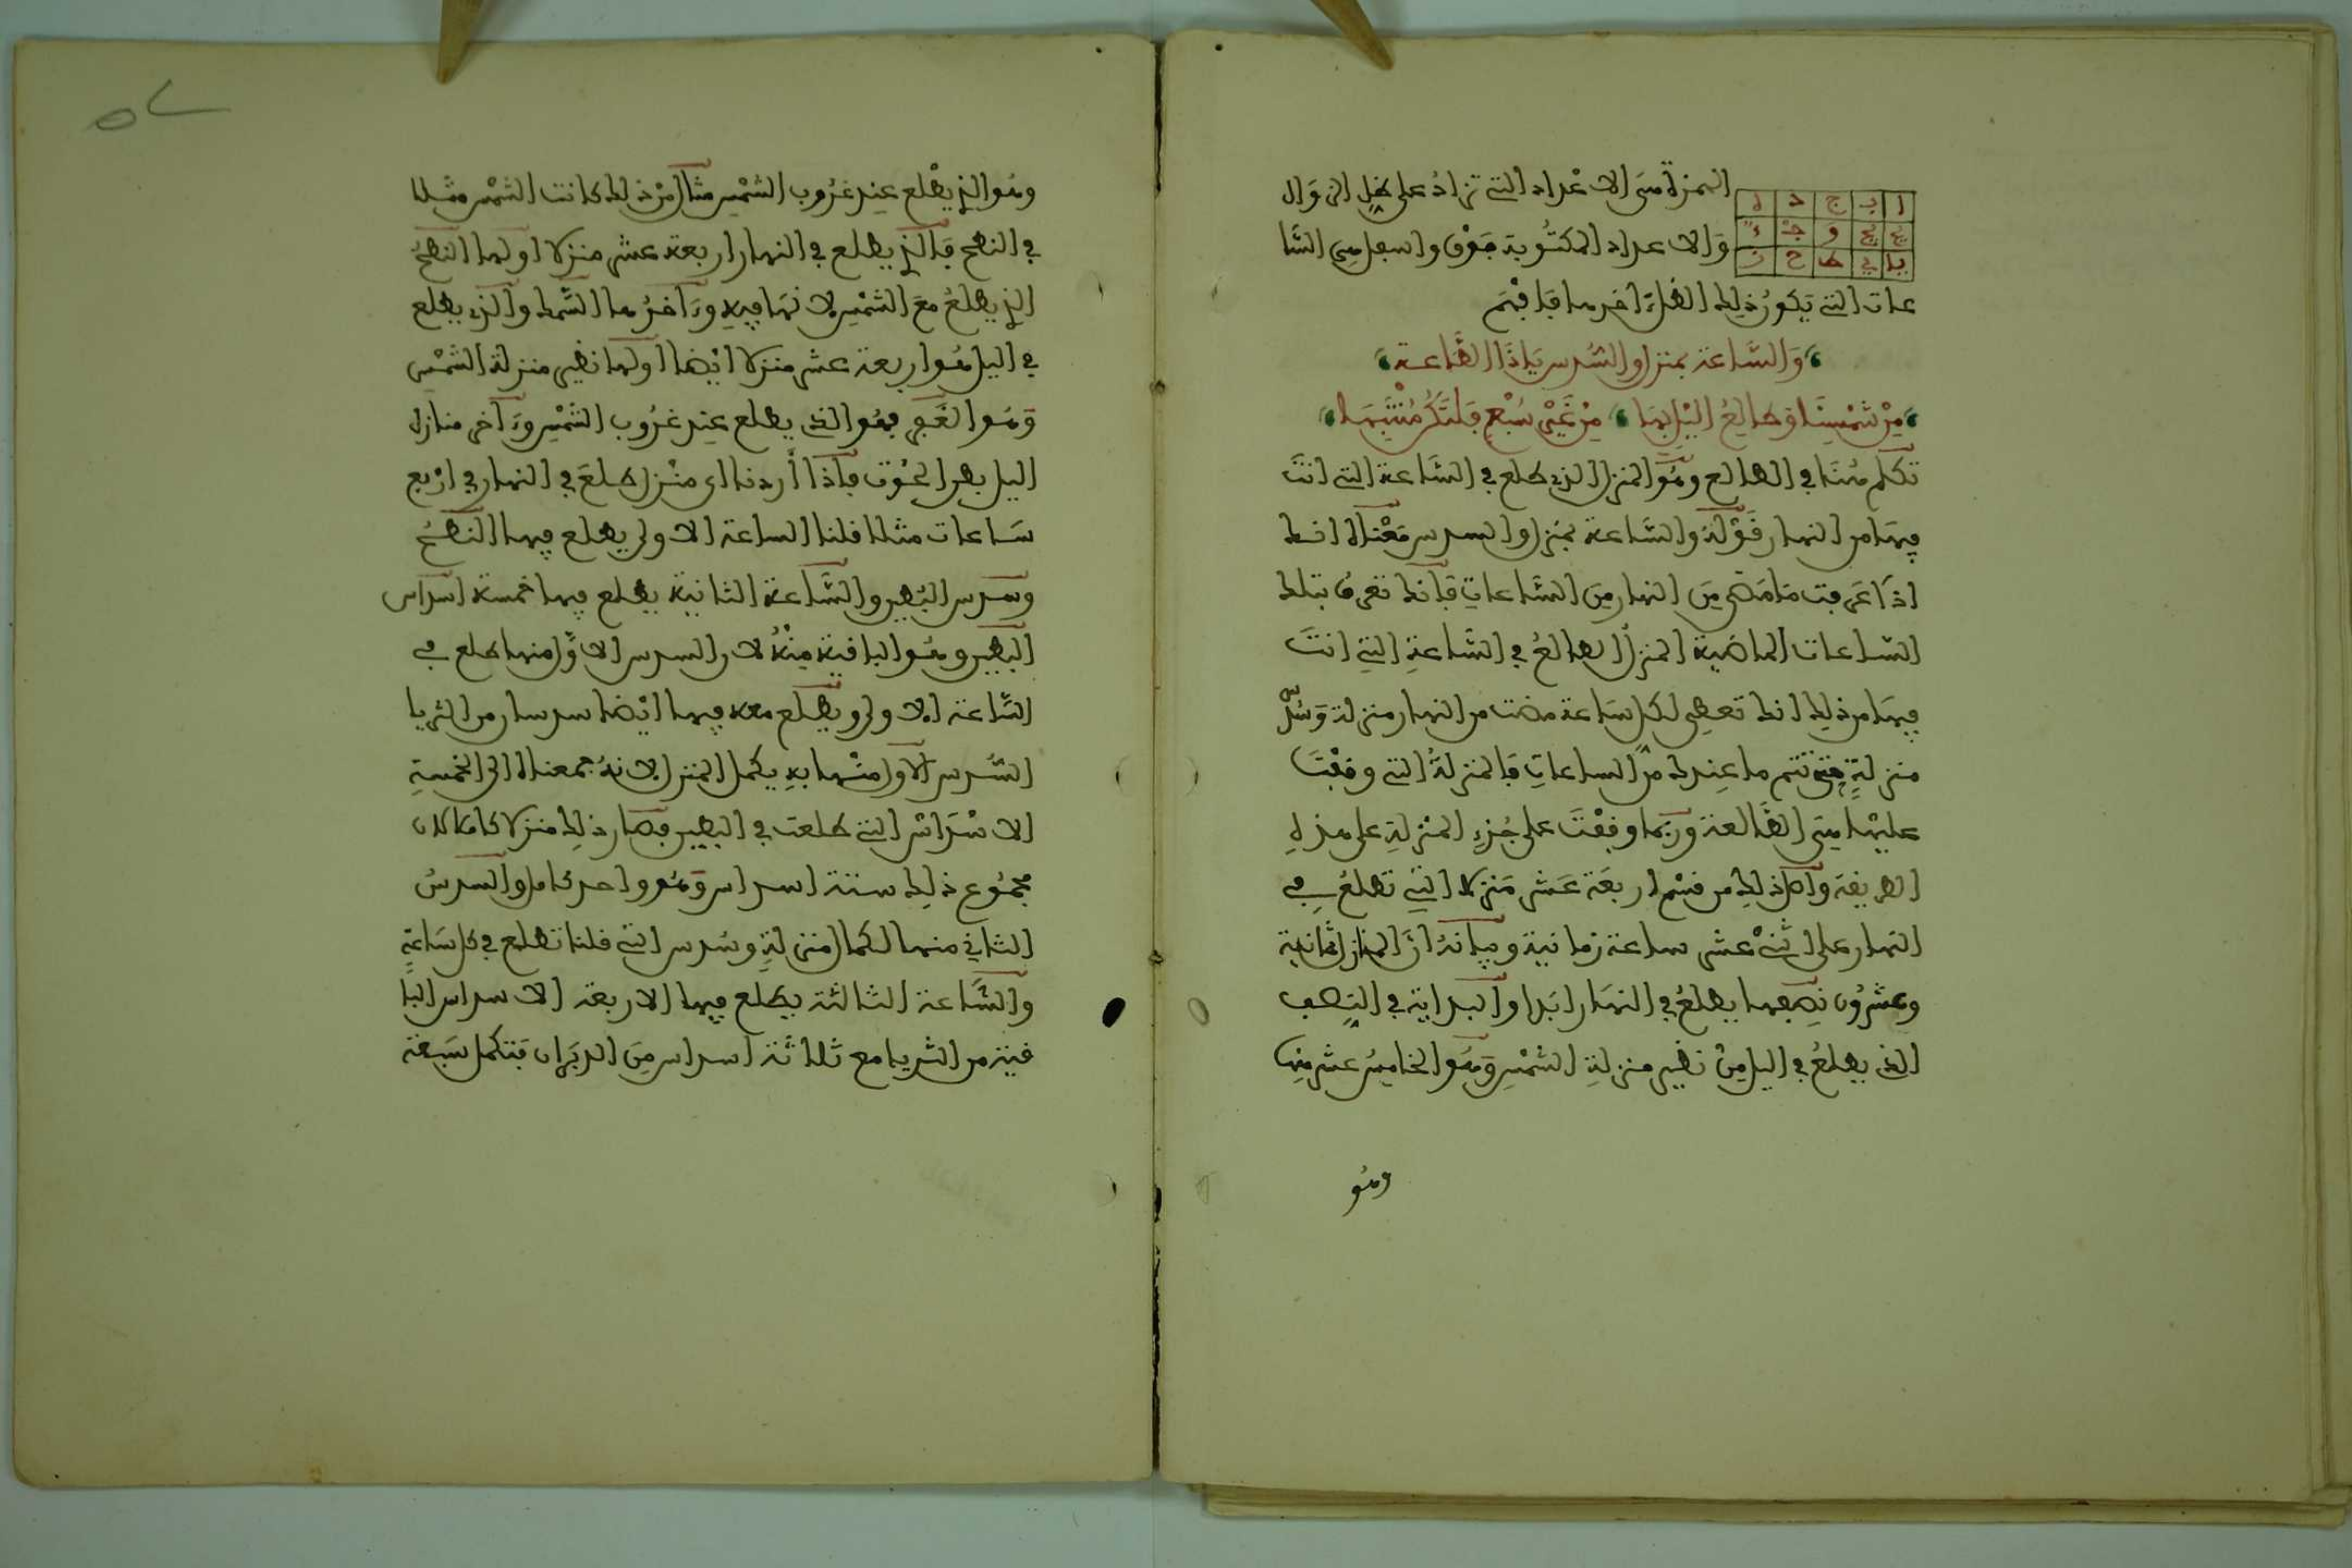 ا ب ج د ه
يج و
يا ي ط ح ز
الهمزة هي الاعداد التي تزاد على ظل الزوال
والاعداد المكتوبة فوق واسفل هي السا
عات التي يكون ذلك الظل اخرها فافهم
والساعة بمنزل والسدس ياذا الطاعة
من شمسنا وطالع اليل بها من غير سبع فلتكن منتبها
تكلم هنا في الطالع وهو المنزل الذي طلع في الساعة التي انت
فيها من النهار فقوله والساعة بمنزل والسدس معناه انك
اذا عرفت ما مضى من النهار من الساعات فانك تعرف بتلك
الساعات الماضية المنزل الطالع في الساعة التي انت
فيها من ذلك انك تعطي لكل ساعة مضت من النهار منزلة وسدس
منزلة حتى تتم ما عندك من الساعات فالمنزلة التي وقفت
عليها هي الطالعة وربما وقفت على جزء المنزلة على هذه
الطريقة واصل ذلك من قسم اربعة عشر منزلا التي تطلع في
النهار على اثني عشر ساعة زمانية وبيانه ان المنازل ثمانية
وعشرون نصفها يطلع في النهار ابدا والبداية في النصف
الذي يطلع في اليل من نظير منزلة الشمس وهو الخامس عشر منها
وهو
٥٢
وهو الذي يطلع عند غروب الشمس مثال من ذلك كانت الشمس مثلا
في النطح فالذي يطلع في النهار اربعة عشر منزلا اولها النطح
الذي يطلع مع الشمس لانها فيه وءاخرها السماك والذي يطلع
في اليل هو اربعة عشر منزلا ايضا اولها نظير منزلة الشمس
وهو الغفر فهو الذي يطلع عند غروب الشمس وءاخر منازل
اليل بطن الحوت فاذا أردنا اي منزل طلع في النهار في اربع
ساعات مثلا قلنا الساعة الاولى يطلع فيها النطح
وسدس البطين والساعة الثانية يطلع فيها خمسة اسداس
البطين وهو الباقية منه لان السدس الاول منها طلع في
الساعة الاولى ويطلع معه فيها ايضا سدسان من الثريا
السدس الاول منها به يكمل المنزل لانه جمعناه الى الخمسة
الاسداس التي طلعت في البطين فصار ذلك منزلا كاملا لان
مجموع ذلك ستة اسداس وهو واحد كامل والسدس
الثاني منها لكمال منزلة وسدس التي قلنا تطلع في كل ساعة
والساعة الثالثة يطلع فيها الاربعة الاسداس البا
قية من الثريا مع ثلاثة اسداس من الدبران فتكمل سبعة